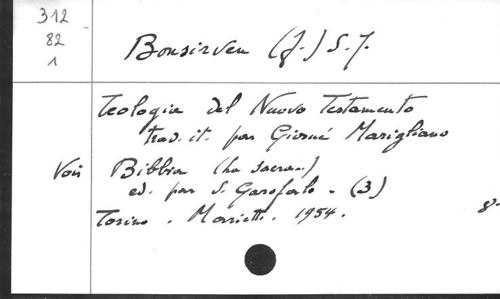 312
82
1
Bonsirven (J.) S.J.
Teologia del Nuovo Testamento
trad. it. par Giosué Marigliano
Voir Bibbia (La sacra..)
ed. par S. Garofalo - (3)
Torino. Marietti. 1954. 8-